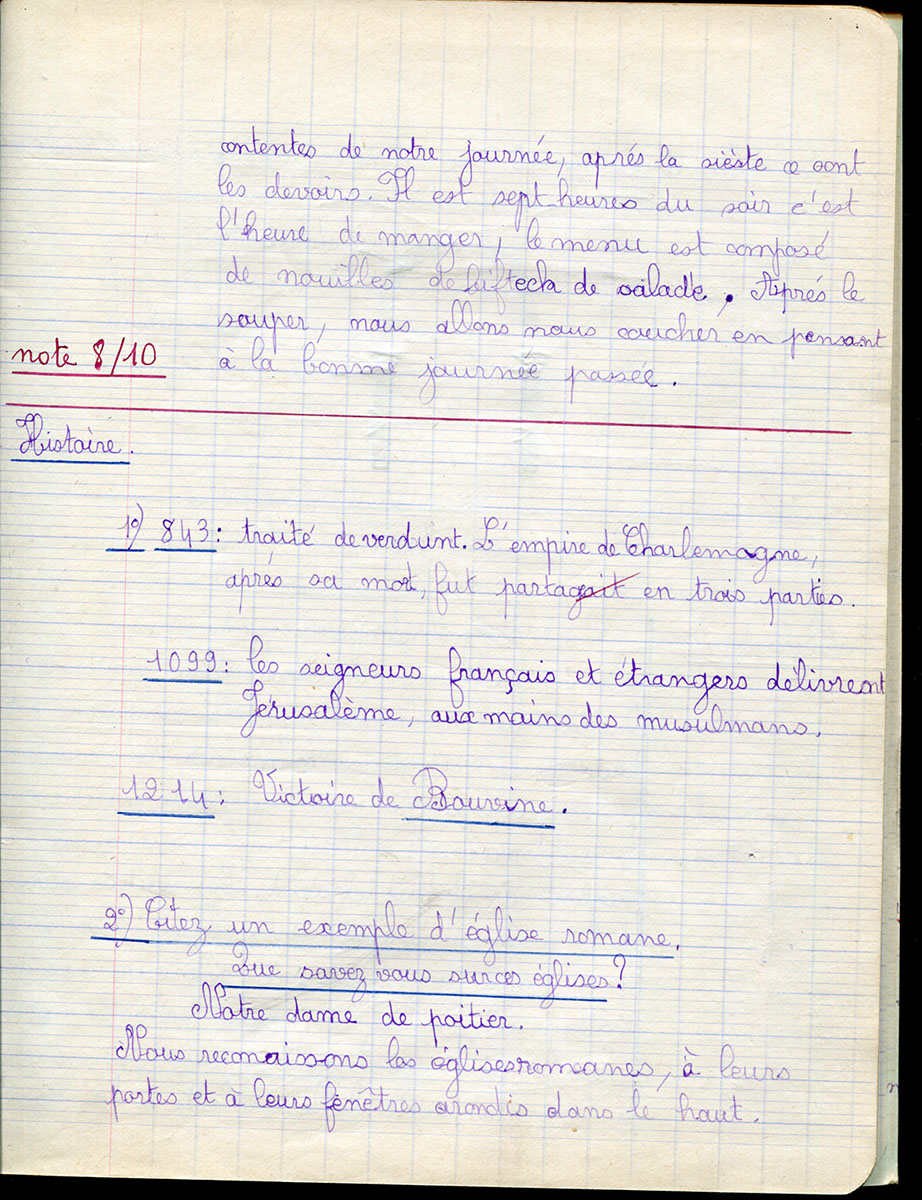 contentes de notre journée, aprés la sièste ce sont
les devoirs. Il est sept heures du soir c'est
l'heure de manger, le menu est composé
de nouilles de bifteck de salade. Aprés le
souper, nous allons nous coucher en pensant
note 8/10
à la bonne journée passée.
Histoire.
1º) 843 : traité de verdunt. L'empire de Charlemagne,
aprés sa mort, fut partagait en trois parties.
1099 : les seigneurs français et étrangers délivrent
Jérusalème, aux mains des musulmans.
1214 : Victoire de Bouvine.
2º) Citez un exemple d'église romane.
Que savez vous sur ces églises ?
Notre dame de poitier.
Nous reconaissons les églises romanes, à leurs
portes et à leurs fenêtres arondis dans le haut.